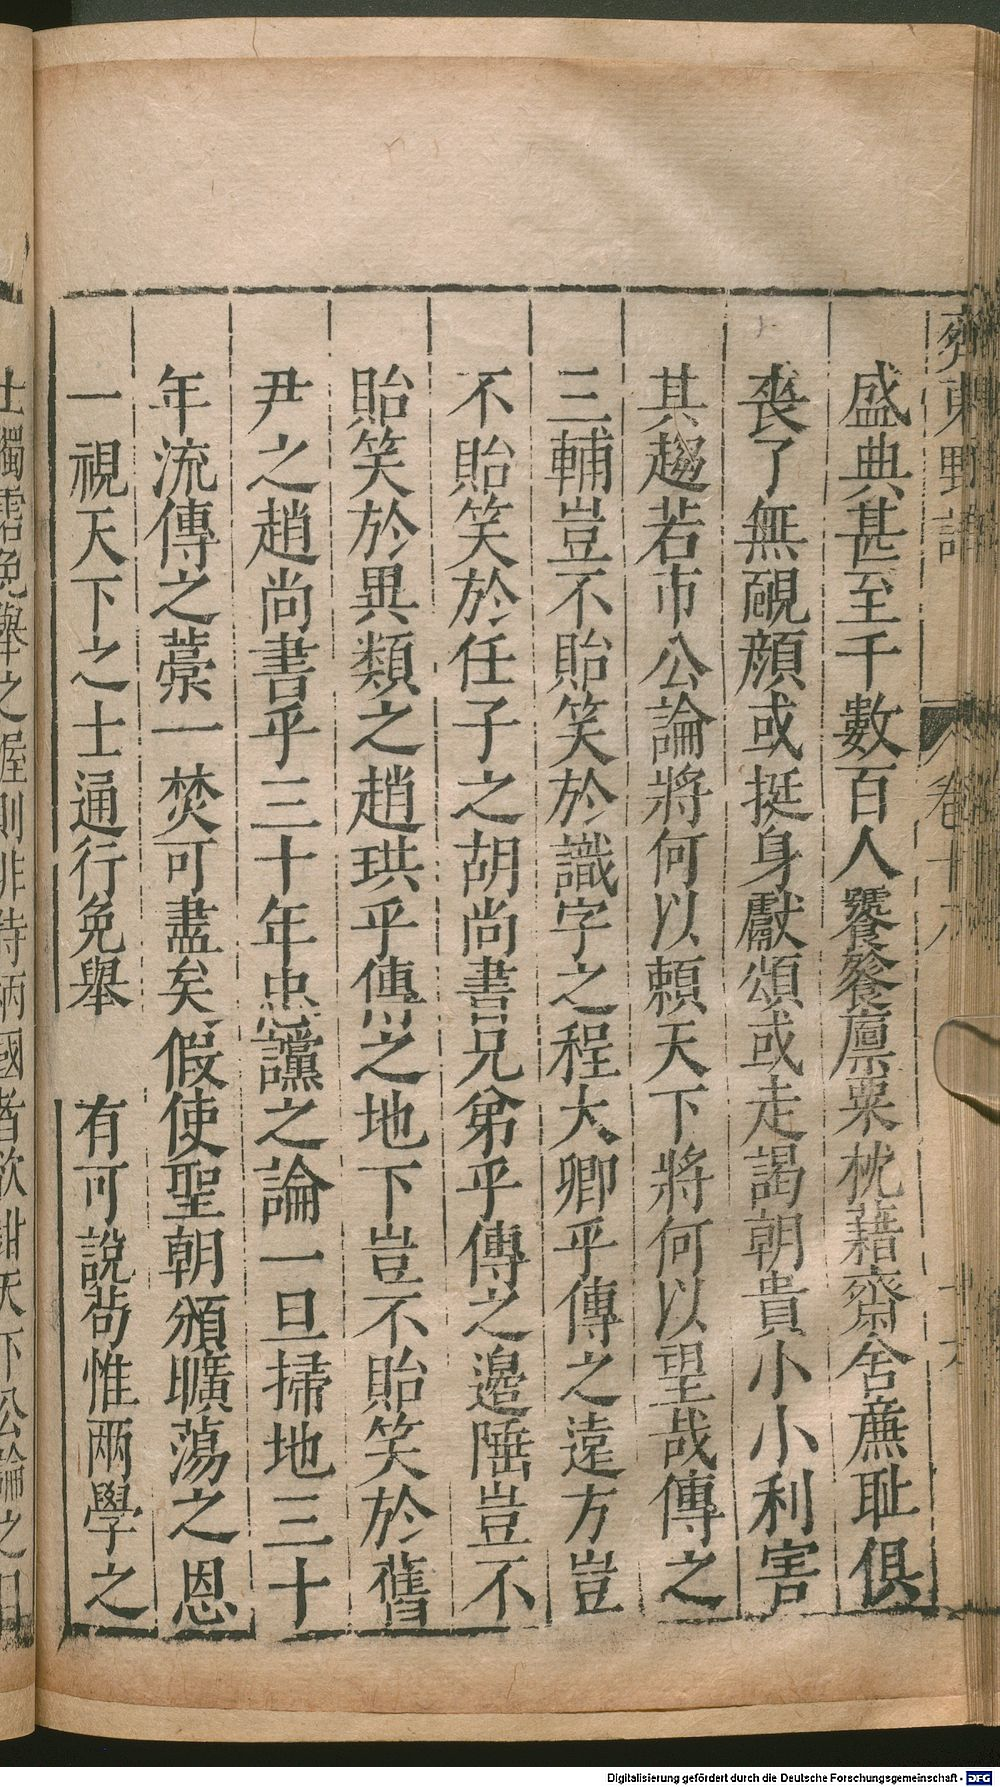 齊東野語
卷十六
盛典甚至千數百人饕餮廪粟枕藉齋舍亷耻俱
喪了無靦顔或挺身獻頌或走謁朝貴小小利害
其趨若市公論將何以頼天下將何以望哉傳之
三輔豈不貽笑於識字之程大卿乎傳之遠方豈
不貽笑於任子之胡尚書兄弟乎傳之邉陲豈不
貽笑於異類之趙珙乎傳之地下豈不貽笑於舊
尹之趙尚書乎三十年忠讜之論一旦掃地三十
年流傳之藁一焚可盡矣假使聖朝頒曠蕩之恩
一視天下之士通行免舉 有可說茍惟兩學之
Digitalisierung gefördert durch die Deutsche Forschungsgemeinschaft - DFG